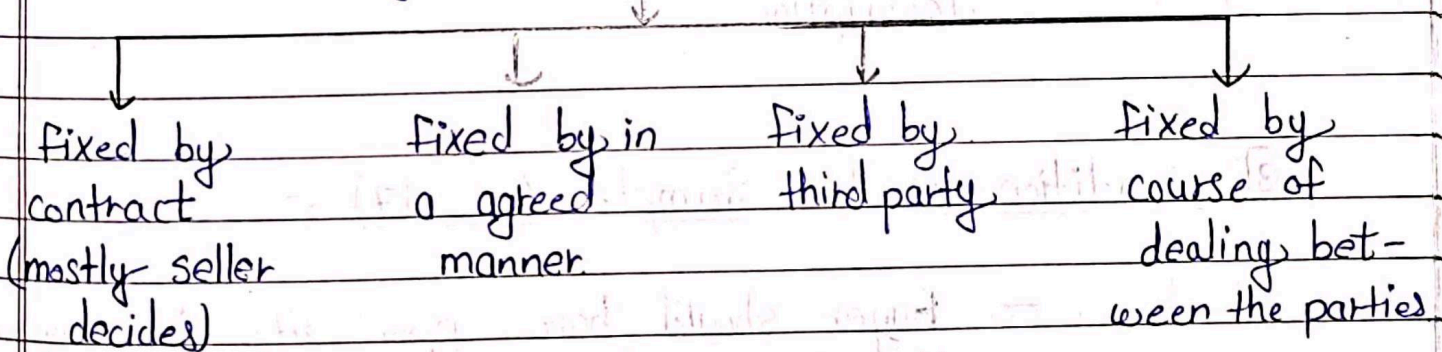 fixed by
contract
(mostly seller
decides)
fixed by in
a agreed
manner.
fixed by
third party
fixed by
course of
dealing bet-
ween the parties